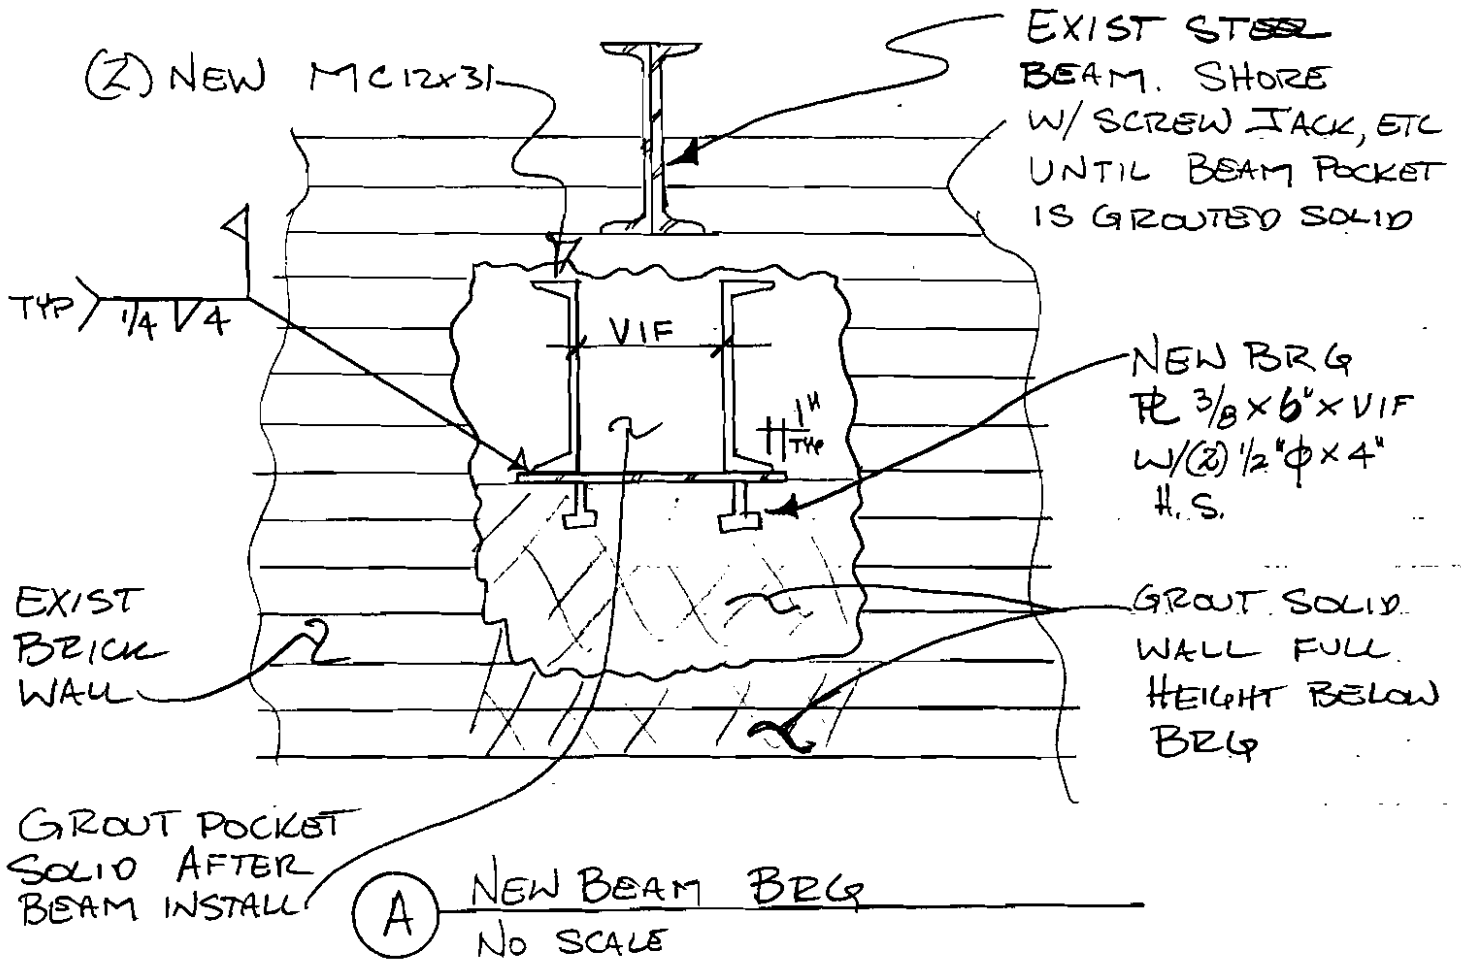 (2) NEW MC12x31
EXIST STEEL
BEAM. SHORE
W/ SCREW JACK, ETC
UNTIL BEAM POCKET
IS GROUTED SOLID
TYP 1/4 4
VIF
1"
TYP
NEW BRG
PL 3/8 x 6" x VIF
W/(2) 1/2"φ x 4"
H.S.
EXIST
BRICK
WALL
GROUT SOLID
WALL FULL
HEIGHT BELOW
BRG
GROUT POCKET
SOLID AFTER
BEAM INSTALL
A NEW BEAM BRG
NO SCALE